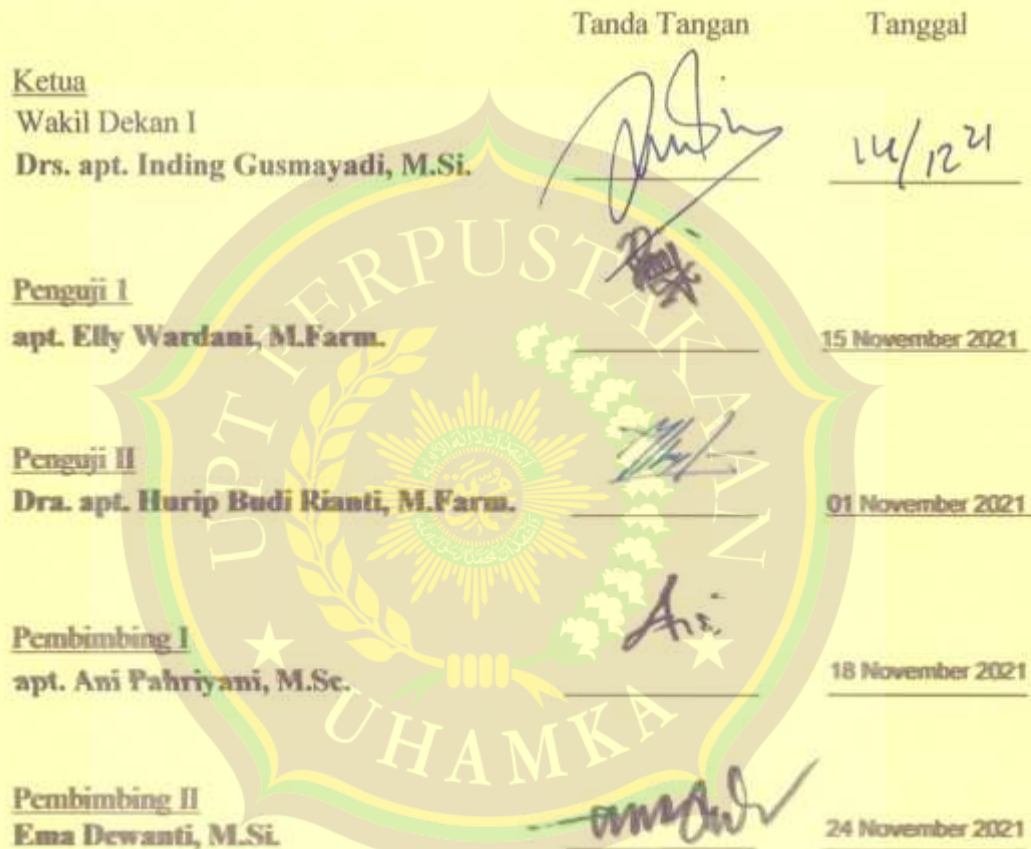 Tanda Tangan Tanggal
Ketua
Wakil Dekan I
Drs. apt. Inding Gusmayadi, M.Si.
14/12 21
Penguji 1
apt. Elly Wardani, M.Farm.
15 November 2021
Penguji II
Dra. apt. Hurip Budi Rianti, M.Farm.
01 November 2021
Pembimbing I
apt. Ani Pahriyani, M.Sc.
18 November 2021
Pembimbing II
Ema Dewanti, M.Si.
24 November 2021
UPT PERPUSTAKAAN
UHAMKA